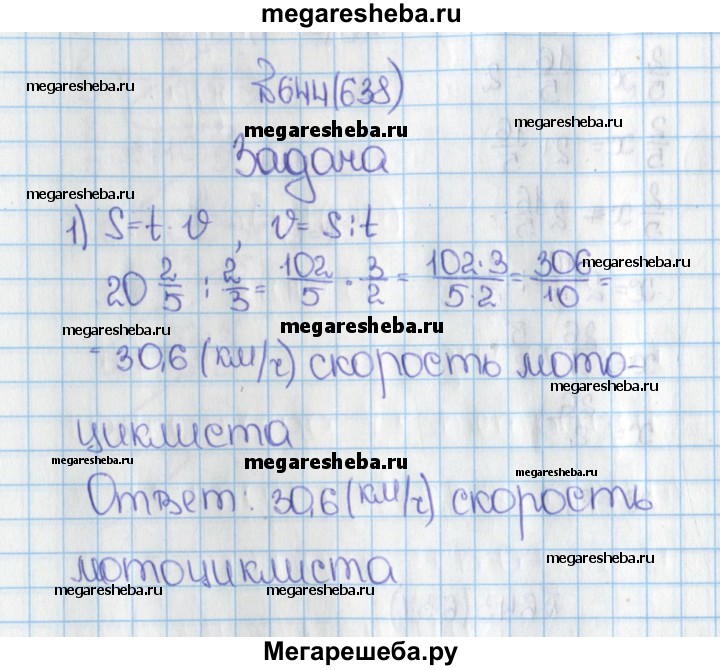 megaresheba.ru
megaresheba.ru
megaresheba.ru
№644(638)
megaresheba.ru
megaresheba.ru
Задача
megaresheba.ru
1) S=t·v, v=S:t
20 2/5 : 2/3 = 102/5 · 3/2 = 102·3/5·2 = 306/10 =
megaresheba.ru
megaresheba.ru
megaresheba.ru
megaresheba.ru
= 30,6 (км/ч) скорость мото-
megaresheba.ru
циклиста
megaresheba.ru
megaresheba.ru
megaresheba.ru
Ответ: 30,6 (км/ч) скорость
мотоциклиста
megaresheba.ru
megaresheba.ru
megaresheba.ru
megaresheba.ru
Мегарешеба.ру